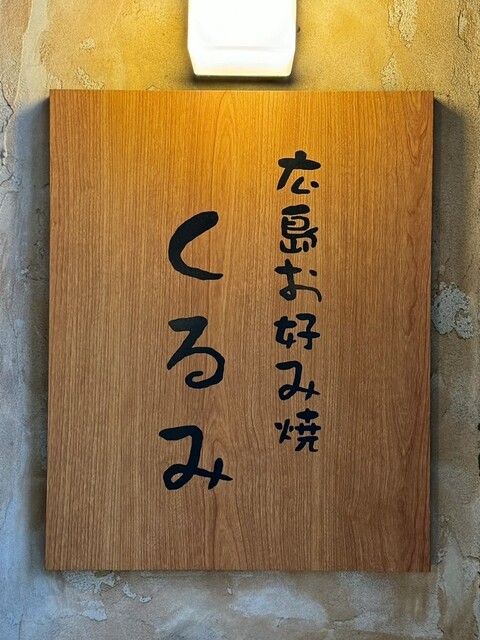 広島お好み焼
くるみ